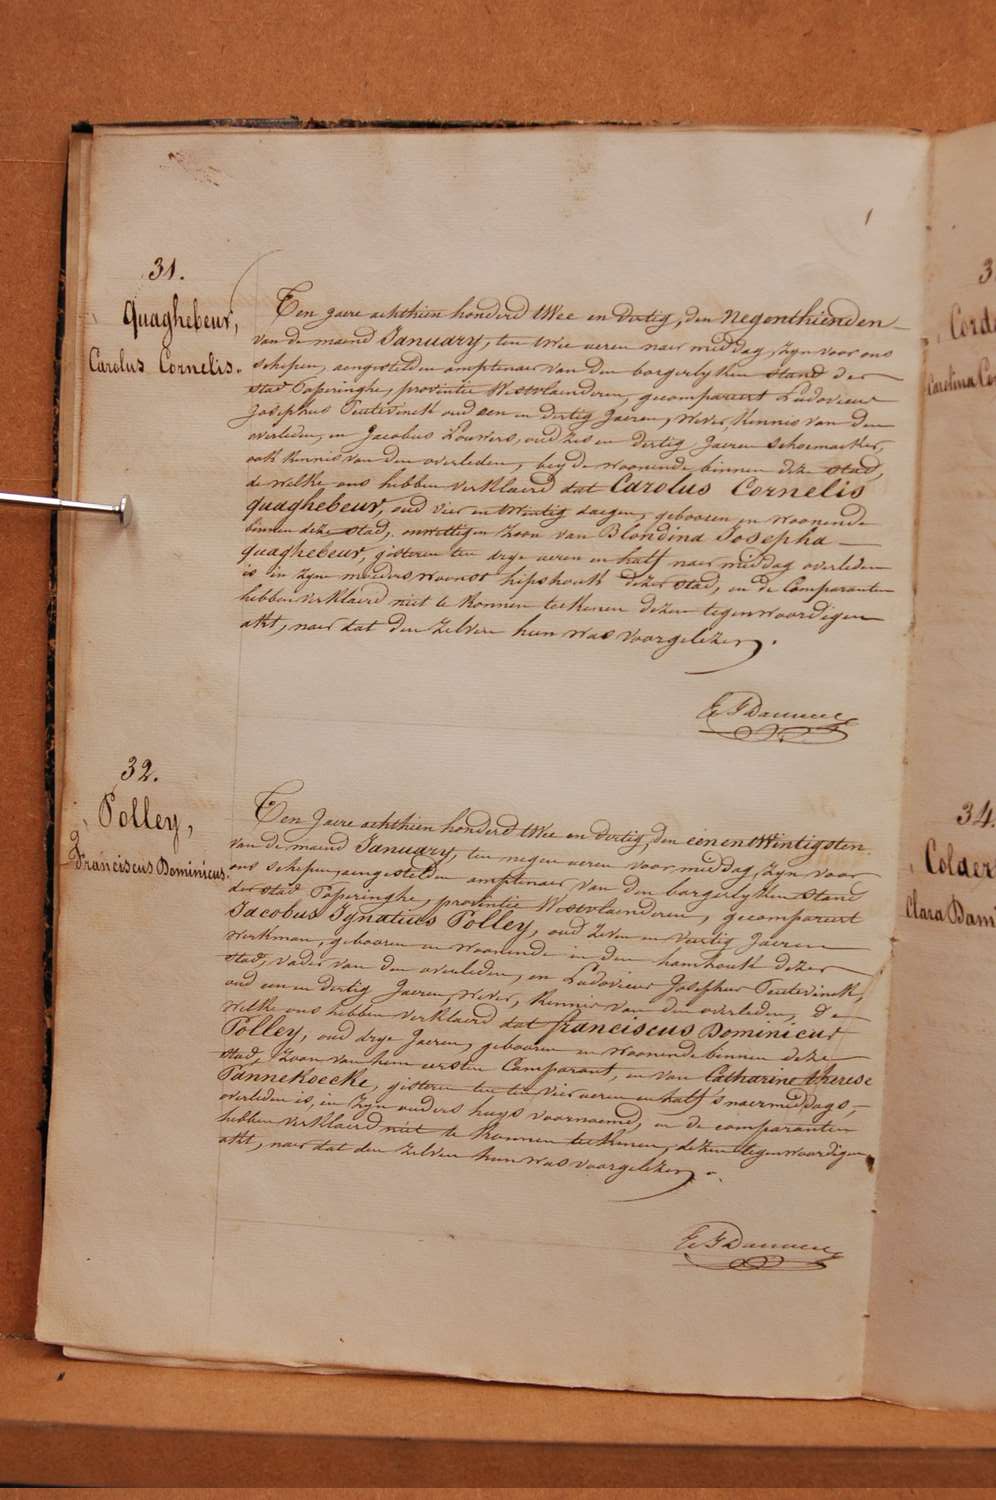 1
31.
Quaghebeur,
Carolus Cornelis.
Ten jaere achthien honderd twee en dertig, den negenthienden
van de maend January, ten twee ueren naer middag, zyn voor ons
schepen, aengestelden amptenaer van den borgerlyken stand der
stad Poperinghe, provintie Westvlaenderen, gecompareert Ludovicus
Josephus Peutevinck oud een en dertig Jaeren, Wever, Kennis van den
overleden, en Jacobus Louwers, oud zes en dertig Jaeren schoemaeker,
ook Kennis van den overleden, beyde woonende binnen deze stad,
de welke ons hebben verklaerd dat Carolus Cornelis
Quaghebeur, oud vier en twintig daegen, gebooren en woonende
binnen deze stad, onwettigen zoon van Blondina Josepha
Quaghebeur, gisteren ten drye ueren en half naer middag overleden
is in zyne moeders woonst hipshoek dezer stad, en de Comparanten
hebben verklaerd niet te konnen teekenen dezen tegenwoordigen
akt, naer dat den zelven hun was voorgelezen.
32.
Polley,
Franciscus Dominicus.
Ten Jaere achthien honderd twee en dertig, den eenentwintigsten
van de maend January, ten negen ueren voor middag, zyn voor
ons schepen, aengestelden amptenaer van den borgerlyken stand
der stad Poperinghe, provintie Westvlaenderen, gecompareert
Jacobus Ignatius Polley, oud zeven en veertig Jaeren
werkman, gebooren en woonende in den hamhoek dezer
stad, vader van den overleden, en Ludovicus Josephus Peutevinck,
oud een en dertig Jaeren, Wever, Kennis van den overleden, de
welke ons hebben verklaerd dat franciscus Dominicus
Polley, oud drye Jaeren, gebooren en woonende binnen deze
stad, zoon van hem eersten Comparant, en van Catharine therese
Pannekoecke, gisteren ten ten vier ueren en half 's naermiddags,
overleden is, in zyn ouders huys voornoemd, en de comparanten
hebben verklaerd niet te konnen teekenen, dezen tegenwoordigen
akt, naer dat den zelven hun was voorgelezen.
34.
Colder
Clara Dom